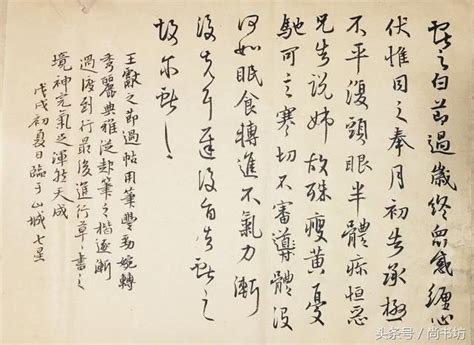 獻之白節過歲終眾感纏心
伏惟同之奉月初告承極
不平復頭眼半體疼恒惡
兄告說姊故殊瘦黃憂
馳可言寒切不審尊體復
何如眠食轉進不氣力漸
復先耳遲復旨告獻之
故尔獻之
王獻之節過帖用筆豐勁婉轉
秀麗典雅從起筆之楷逐漸
過渡到行最後進行草書之
境神元氣足渾然天成
戊戌初夏日臨于山城七星
头条号 / 尚书坊